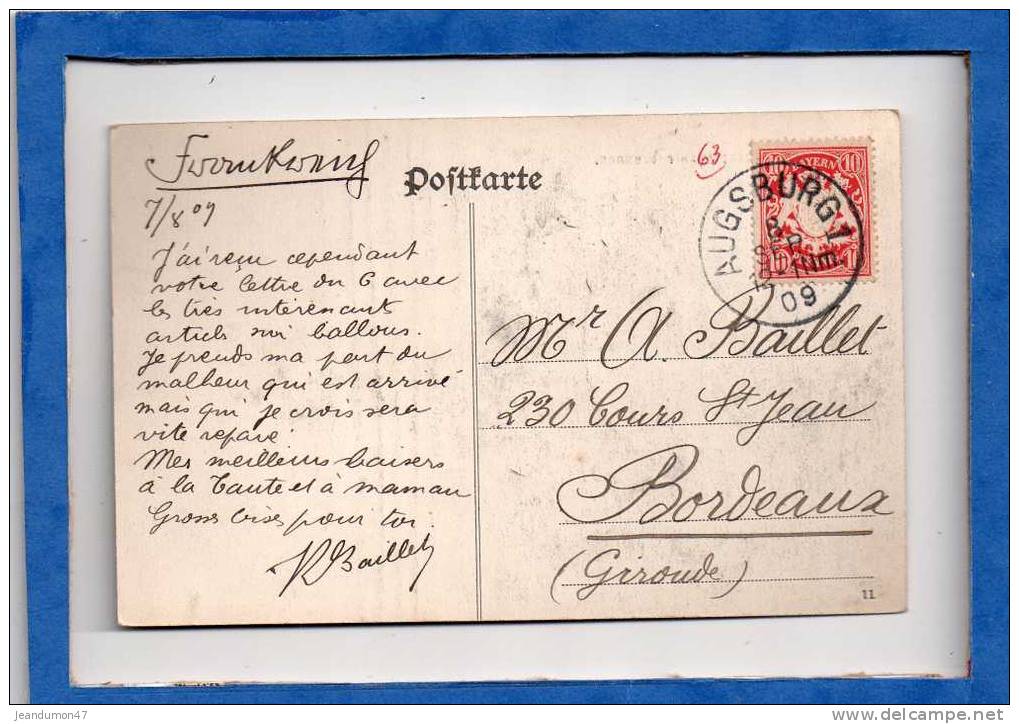 Frankreich
Postkarte
63
7/8 09
J'ai reçu cependant
votre lettre du 6 avec
les très intéressant
article sur ballons.
Je prends ma part du
malheur qui est arrivé
mais qui je crois sera
vite reparé.
Mes meilleurs baisers
à la Tante et à maman
Grosses bises pour toi.
R Baillet
10 BAYERN 10
AUGSBURG 1
09
Mr A. Baillet
230 Cours St Jean
Bordeaux
(Gironde)
11
jeandumon47
www.delcampe.net